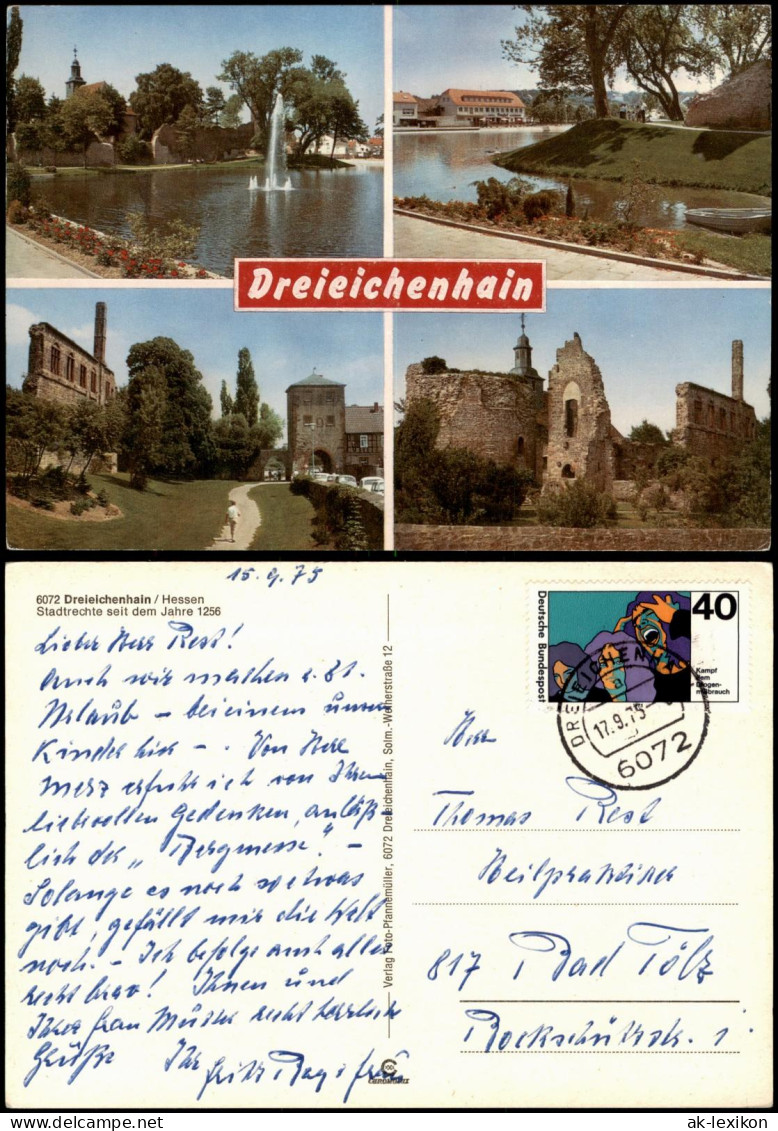 Dreieichenhain
6072 Dreieichenhain / Hessen
Stadtrechte seit dem Jahre 1256
15.9.75
Lieber Herr Rest!
Auch wir machen z. Zt.
Urlaub - bei einem unserer
Kinder hier -. Von Herr
Merz erfuhr ich von Ihrem
liebevollen Gedenken, anläß-
lich der "Bergmesse". -
Solange es noch so etwas
gibt, gefällt mir die Welt
noch. - Ich befolge auch alles
recht brav! Ihnen und
Ihrer Frau Mutter recht herzliche
Grüße Ihr
Fritz
Verlag Foto-Pfannemüller, 6072 Dreieichenhain, Solm.-Weiherstraße 12
Deutsche Bundespost
40
Kampf
dem
Drogen-
mißbrauch
DREIEICHENHAIN
17.9.75
6072
Herr
Thomas Rest
Heilpraktiker
817 Bad Tölz
ak-lexikon.com